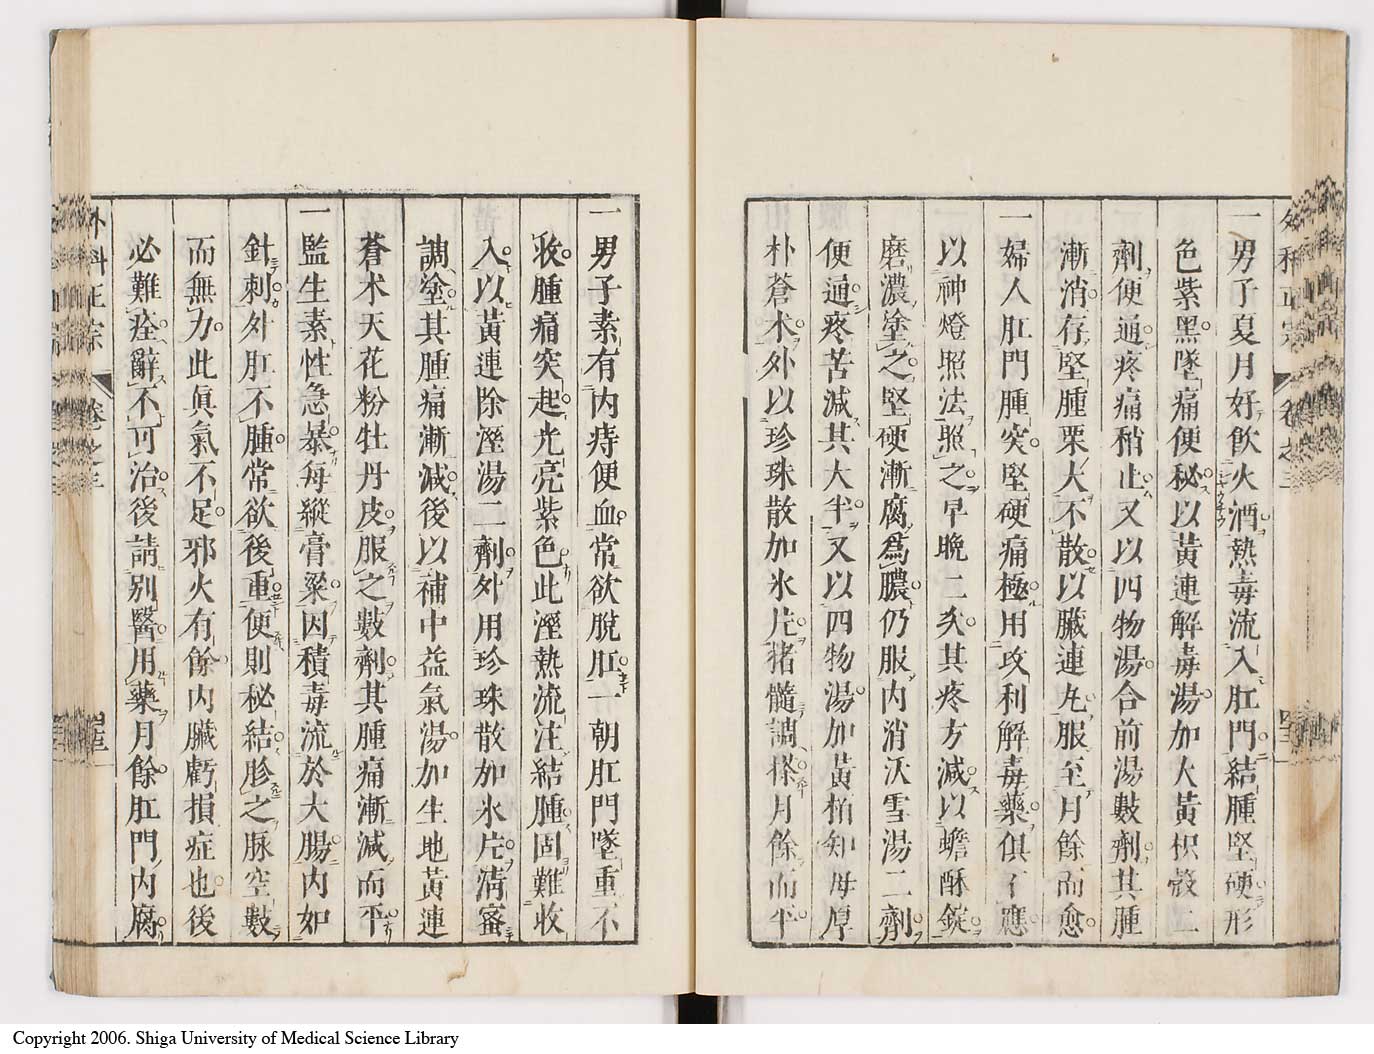 外科正宗 卷之三
一男子夏月好飲火酒熱毒流入肛門結腫堅硬形
色紫黑墜痛便秘以黃連解毒湯加大黃枳殼二
劑便通疼痛稍止又以四物湯合前湯數劑其腫
漸消存堅腫栗大不散以臟連丸服至月餘而愈
一婦人肛門腫突堅硬痛極用攻利解毒藥俱不應
以神燈照法照之早晚二次其疼方減以蟾酥錠
磨濃塗之堅硬漸腐爲膿仍服內消沃雪湯二劑
便通疼苦減其大半又以四物湯加黃柏知母厚
朴蒼朮外以珍珠散加氷片猪髓調搽月餘而平
一男子素有內痔便血常欲脫肛一朝肛門墜重不
收腫痛突起光亮紫色此溼熱流注結腫固難收
入以黃連除溼湯二劑外用珍珠散加氷片淸蜜
調塗其腫痛漸減後以補中益氣湯加生地黃連
蒼朮天花粉牡丹皮服之數劑其腫痛漸減而平
一監生素性急暴每縱膏粱因積毒流於大腸內如
針刺外肛不腫常欲後重便則秘結胗之脉空數
而無力此眞氣不足邪火有餘內臟虧損症也後
必難痊辭不可治後請別醫用藥月餘肛門內腐
外科正宗 卷之三